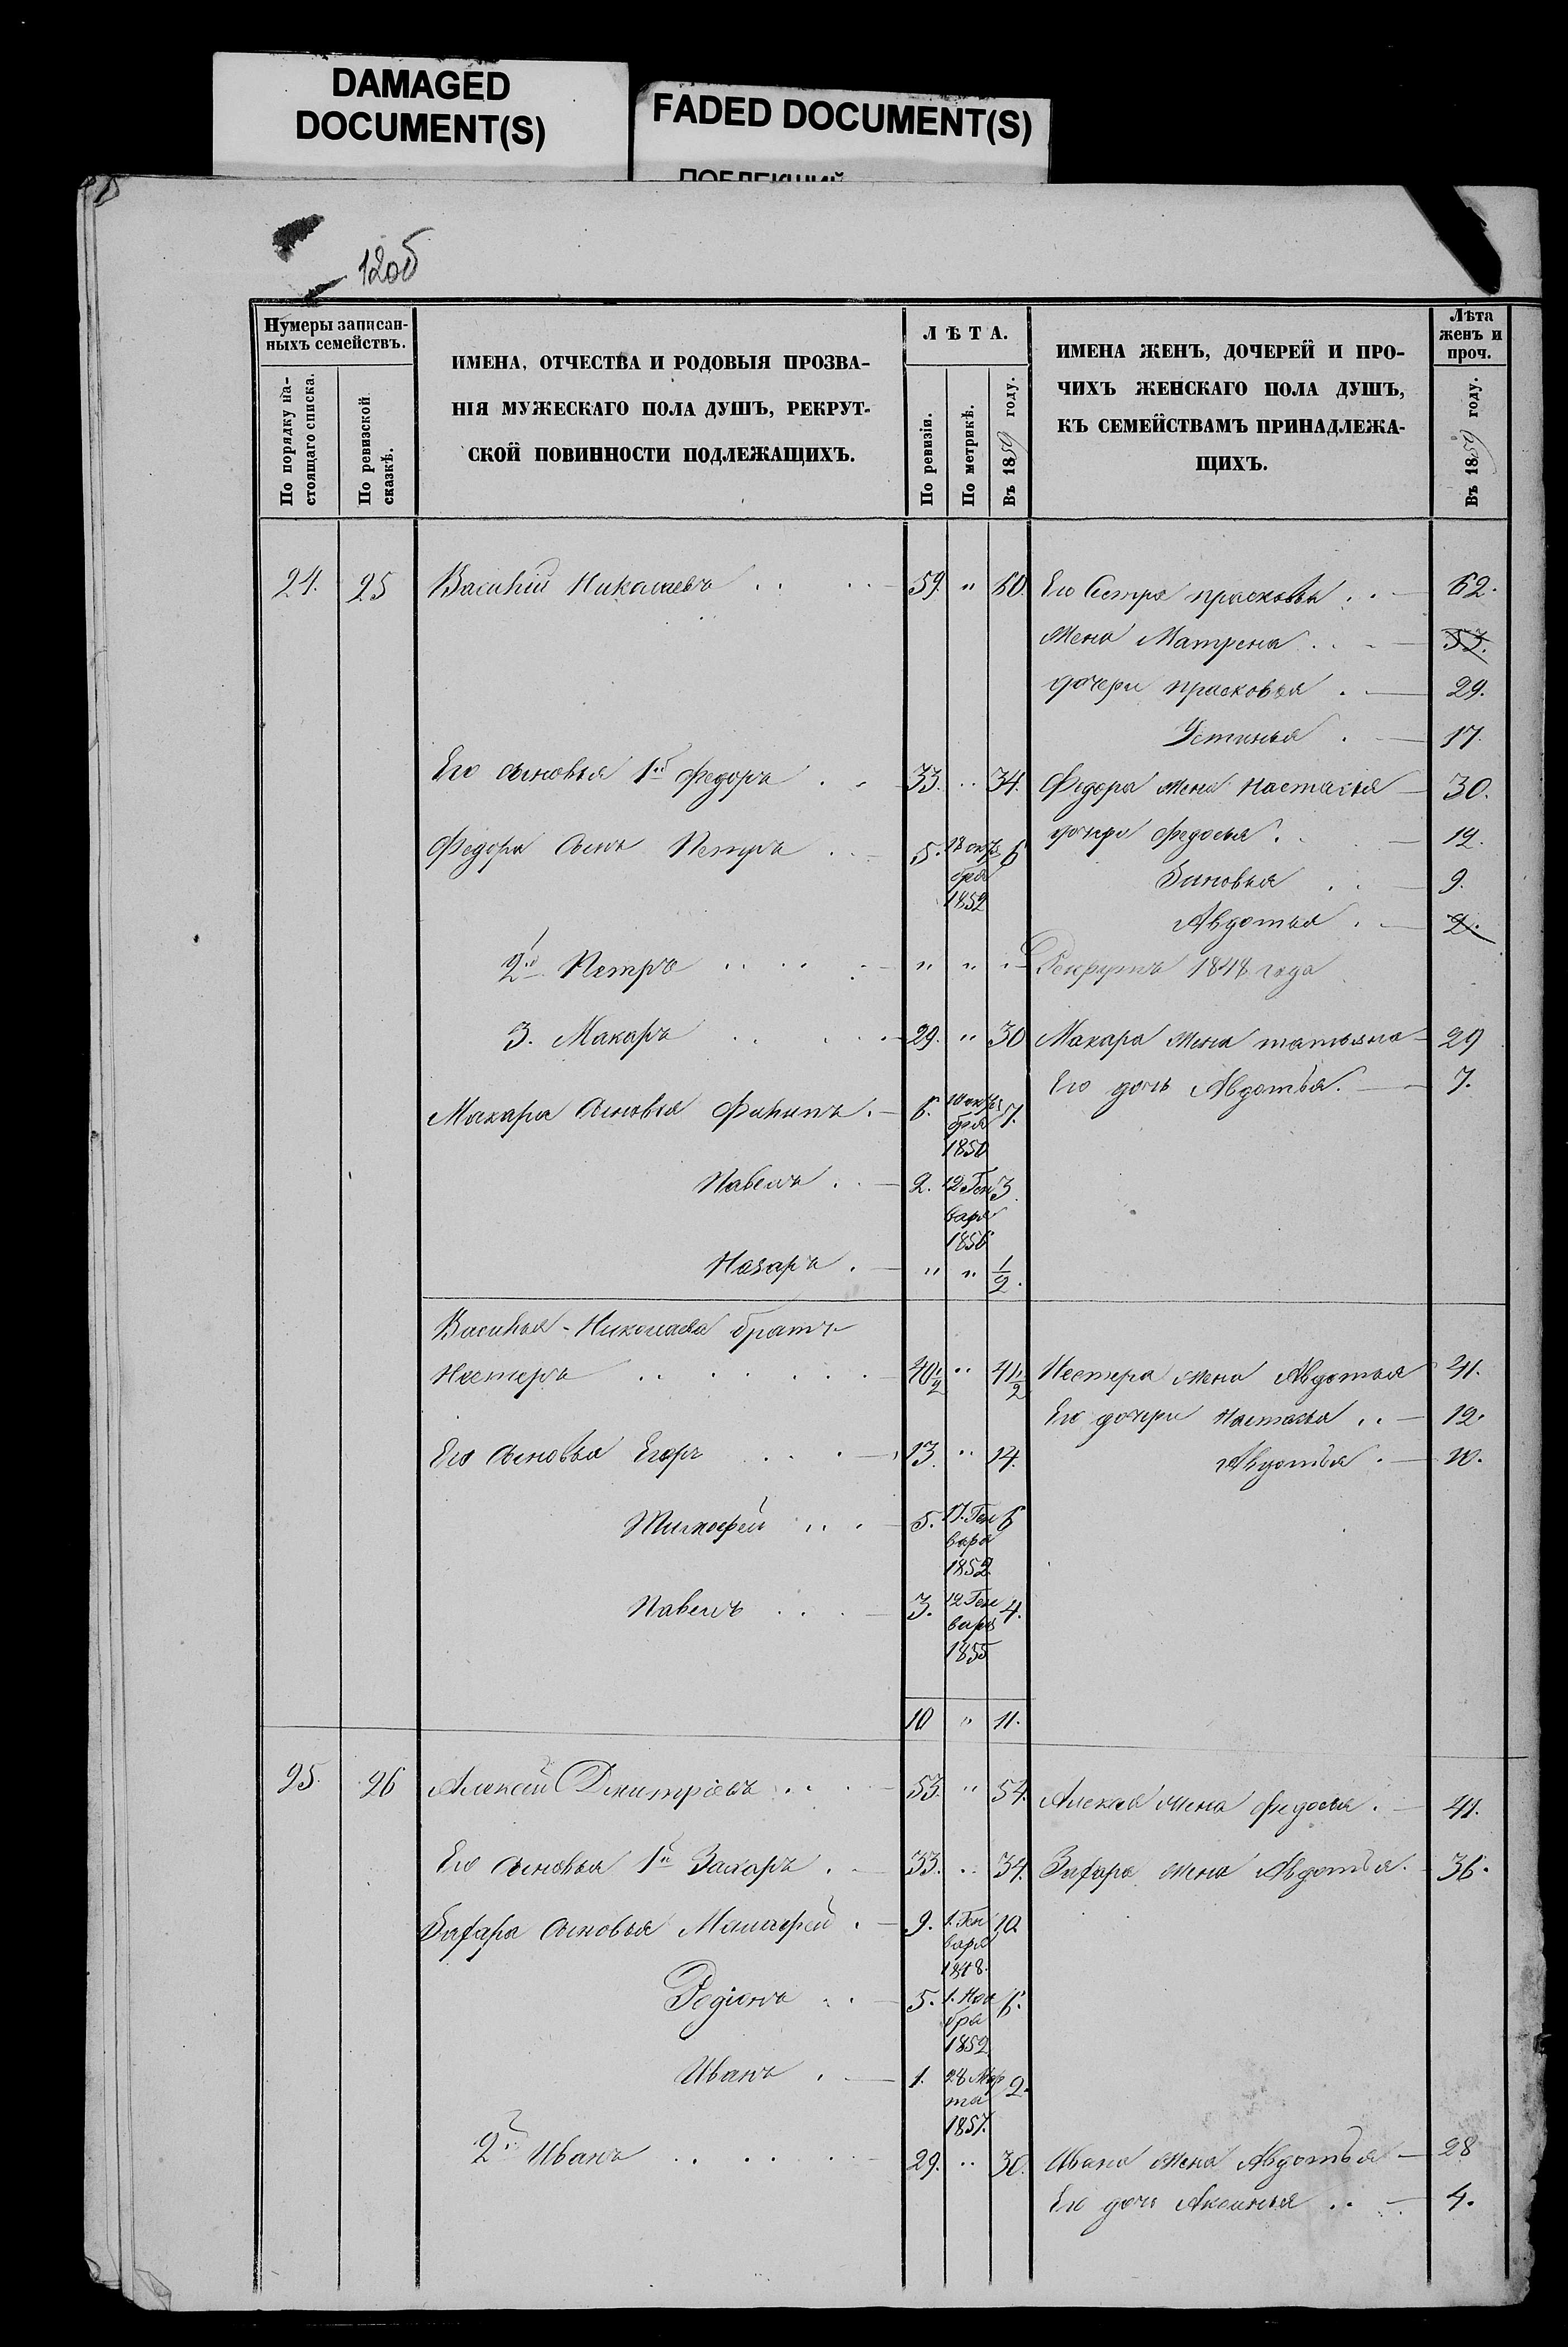 DAMAGED
DOCUMENT(S)
FADED DOCUMENT(S)
120б
Нумеры записан-
ныхъ семействъ.
По порядку на-
стоящаго списка.
По ревизской
сказкѣ.
ИМЕНА, ОТЧЕСТВА И РОДОВЫЯ ПРОЗВА-
НІЯ МУЖЕСКАГО ПОЛА ДУШЪ, РЕКРУТ-
СКОЙ ПОВИННОСТИ ПОДЛЕЖАЩИХЪ.
ЛѢТА.
По ревизіи.
По метрикѣ.
Въ 1859 году.
ИМЕНА ЖЕНЪ, ДОЧЕРЕЙ И ПРО-
ЧИХЪ ЖЕНСКАГО ПОЛА ДУШЪ,
КЪ СЕМЕЙСТВАМЪ ПРИНАДЛЕЖА-
ЩИХЪ.
Лѣта
женъ и
проч.
Въ 1859 году.
24. 25 Василій Николаевъ 59. " 60. Его Сестра прасковья 62.
Жена Матрена 53.
дочери прасковья 29.
Устинья 17.
Его сыновья 1й Федоръ 33. " 34. Федора жена Настасья 30.
Федора сынъ Петръ 5. 18 октя 6 дочери Федосья 12.
бря
1852
Зиновья 9.
Авдотья 2.
2й Петръ " " " Рекрутъ 1848 года
3. Макаръ 29. " 30 Макара жена татьяна 29
Его дочь Авдотья. 7.
Макара сыновья Филипъ 6. 10 октя 7.
бря
1850
Павелъ 2. 12 Ген 3
варя
1856
Назаръ " " 1/2.
Василья Николаева братъ
Нестеръ 40 1/2 " 41 1/2 Нестера жена Авдотья 41.
Его дочери Настасья 12.
Его сыновья Егоръ 13. " 14. Авдотья 10.
Тимофей 5. 17. Ген 6
варя
1852
Павелъ 3. 12 Ген 4.
варя
1855
10 " 11.
25. 26 Алексей Дмитріевъ 53. " 54. Алексея жена Федосья 41.
Его сыновья 1й Захаръ 33. " 34. Захара жена Авдотья 36.
Захара сыновья Малафей 9. 1. Ген 10
варя
1848.
Родіонъ 5. 1. Ноя 6.
бря
1852
Иванъ 1. 28 Мар 2.
та
1857.
2й Иванъ 29. " 30. Ивана жена Авдотья 28
Его дочь Аксинья 4.